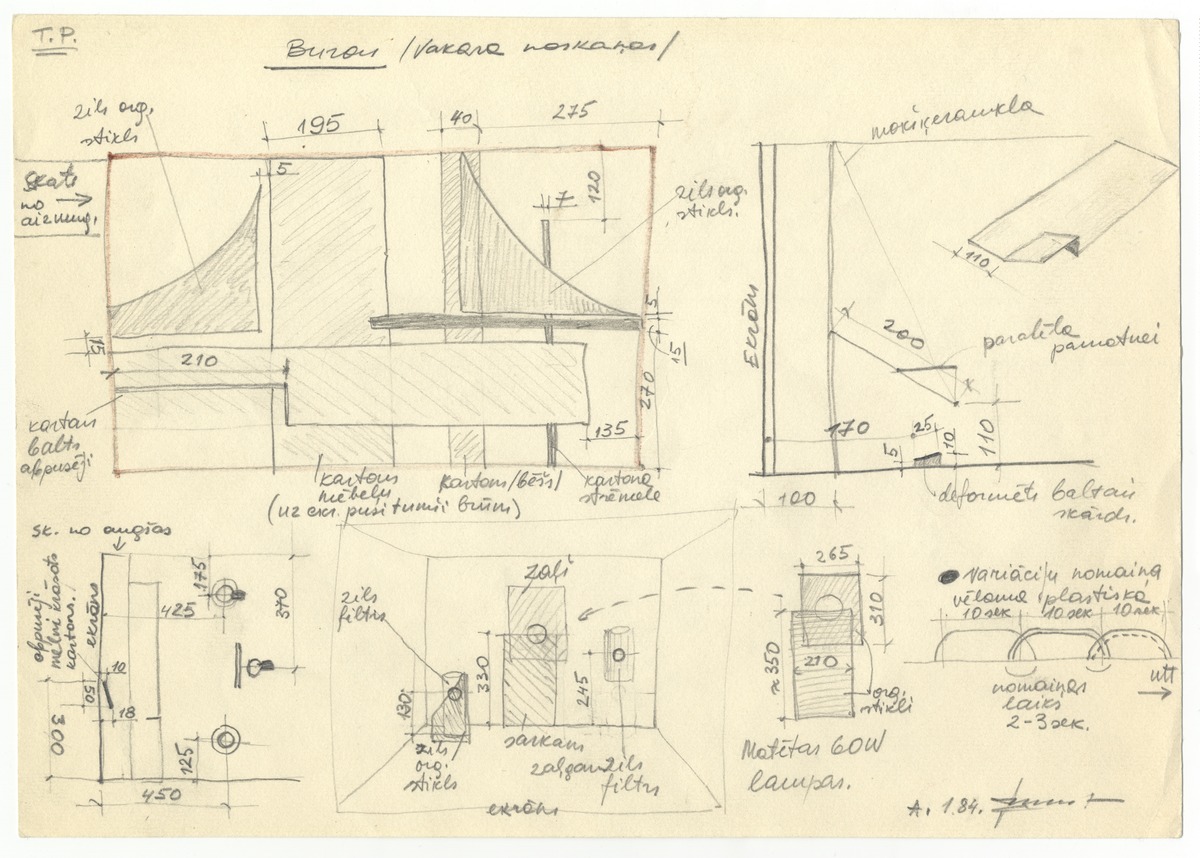 T.P.
Burāsi /Vakara noskaņas/
zils org.
stikls
195
40
275
skats
no
aizmug.
5
7
120
zils org.
stikls.
5
15
15
210
270
135
kartons
balts
abpusēji
kartons
mēbeļu
(uz ekr. pusi tumši brūns)
kartons/bēšs/
kartona
strēmele
110
Ekrāns
200
paralēla
pamatnei
170
25
5
10
110
100
deformēts baltais
skārds.
sk. no augšas
abpusēji
melni krāsots
kartons.
ekrāns
175
425
370
10
50
18
300
125
450
zaļš
zils
filtrs
330
130
245
zils
org.
stikls
sarkans
zaļgan zils
filtrs
ekrāns
265
310
≈350
210
org.
stikli
Matētas 60W
lampas.
Variāciju nomaiņa
vēlama plastiska
10 sek 10 sek 10 sek
nomaiņas
laiks
2-3 sek.
utt
A. 1.84.